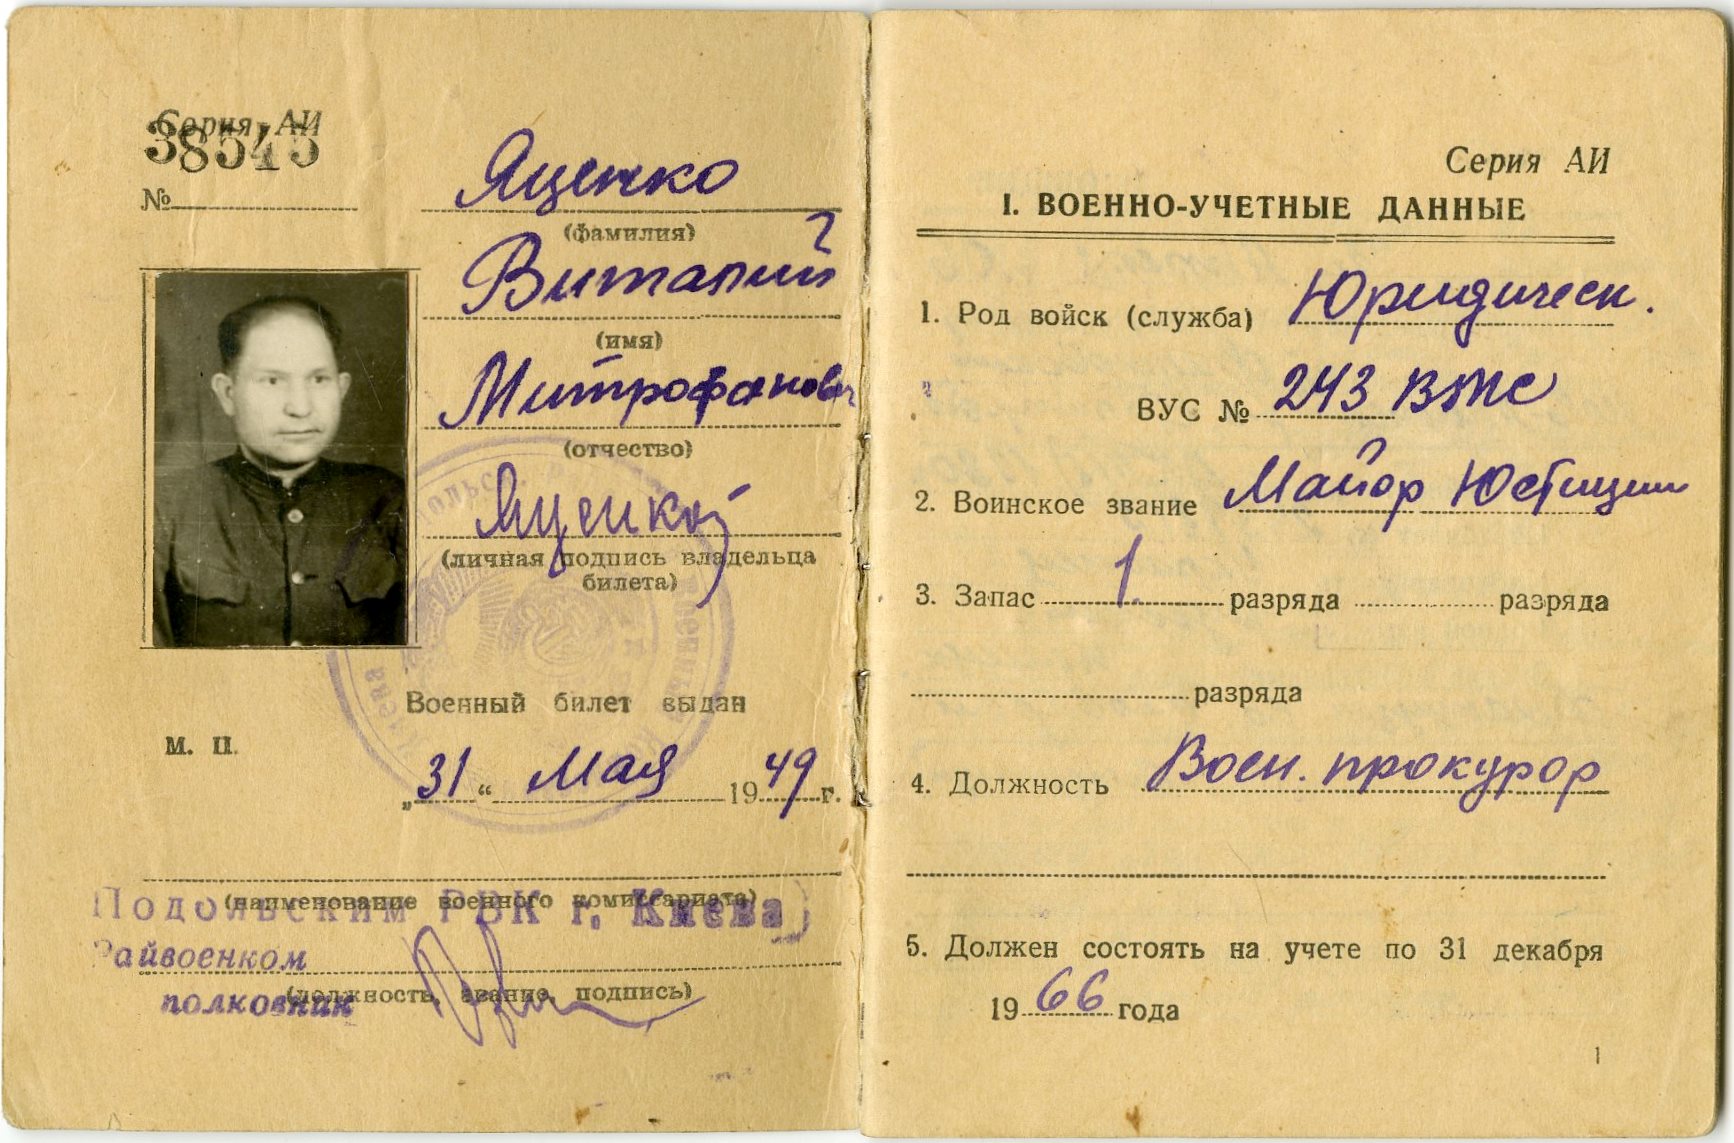 Серия АИ
38545
№
Яценко
(фамилия)
Виталий
(имя)
Митрофанович
(отчество)
Яценко
(личная подпись владельца
билета)
Военный билет выдан
М. П.
„31“ Мая 1949 г.
(наименование военного комиссариата)
Подольским РВК г. Киева
Райвоенком
полковник
(должность, звание, подпись)
Серия АИ
I. ВОЕННО-УЧЕТНЫЕ ДАННЫЕ
1. Род войск (служба) Юридическ.
ВУС № 243
2. Воинское звание Майор Юстиции
3. Запас 1. разряда разряда
разряда
4. Должность Воен. прокурор
5. Должен состоять на учете по 31 декабря
1966 года
1